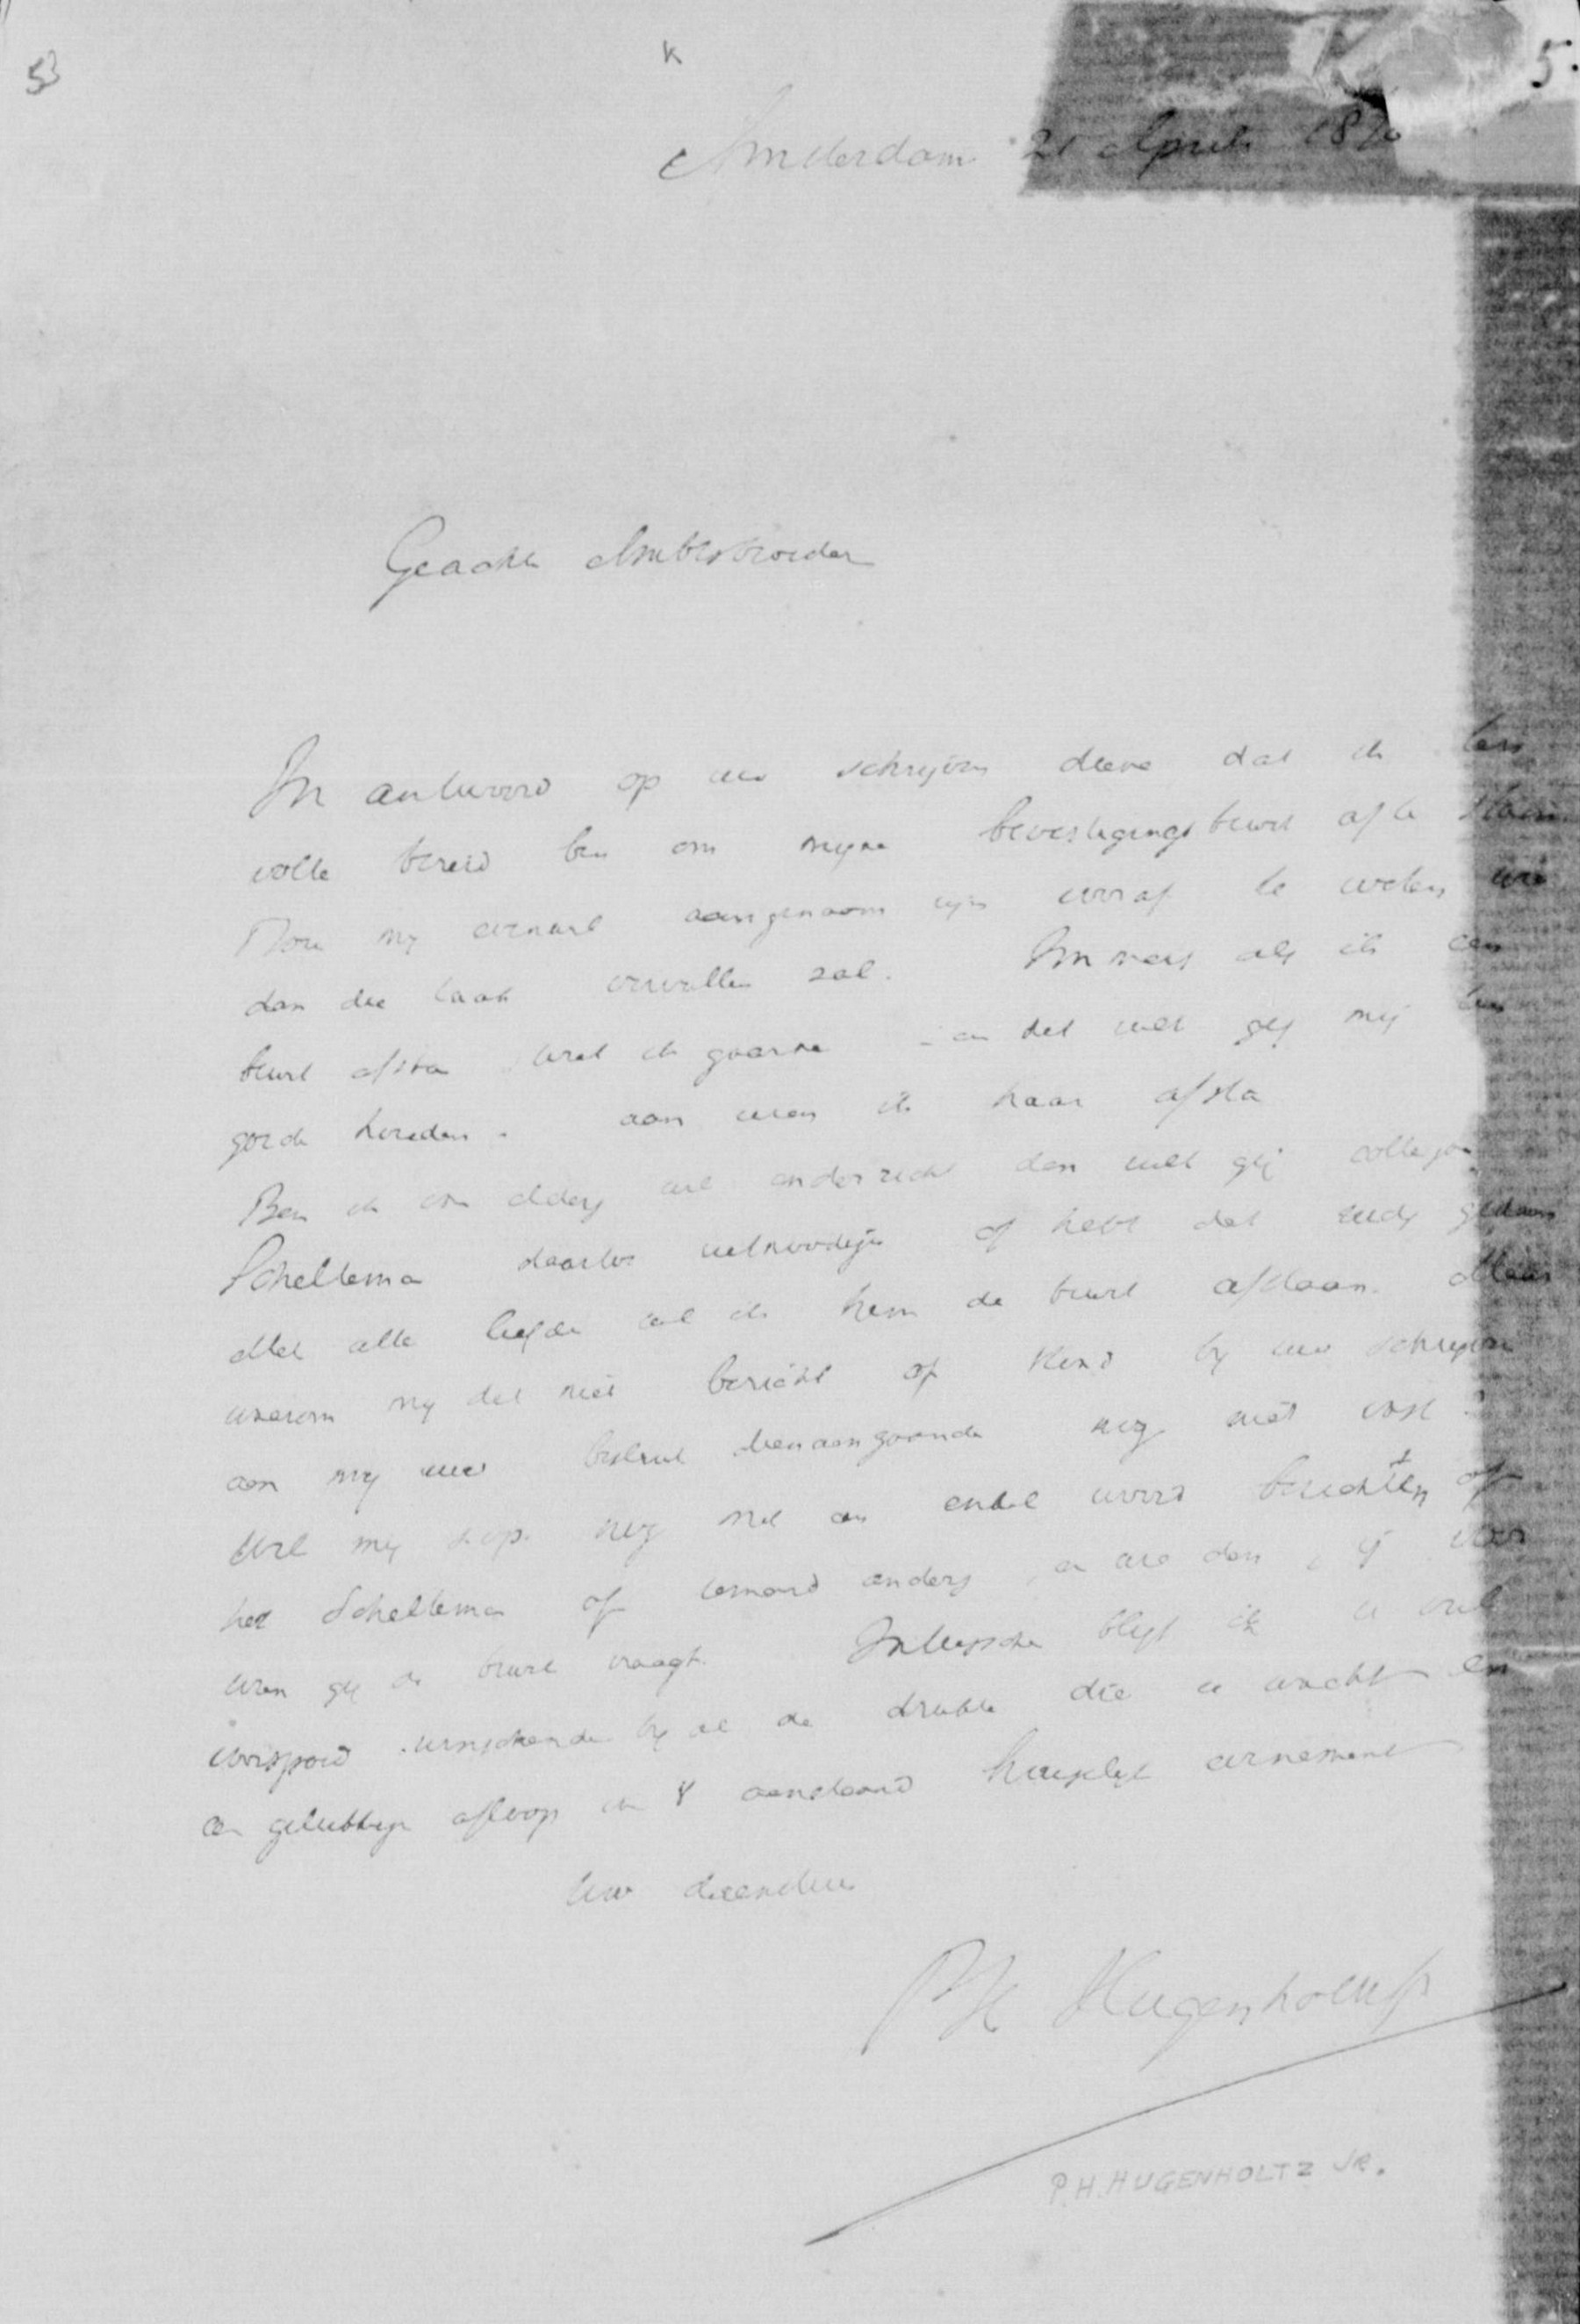 53
K
5.
Amsterdam 21 April 1870
Geachte Ambtsbroeder
In antwoord op uw schrijven diene dat ik ten
volle bereid ben om mijne bevestigingsbeurt af te staan
Doch my aangenaam zijn vooraf te weten wie
dan die taak vervullen zal. Immers als ik een
beurt afsta weet ik gaarne - en dat zult gij mij ten
goede houden - aan wien ik haar afsta
Ben ik van elders wel onderricht dan wilt gij collega
Scheltema daartoe uitnoodigen of hebt dat reeds gedaan
Met alle liefde wil ik hem de beurt afstaan. Alleen
waarom my dat niet bericht of stond bij uw schrijven
aan mij uw besluit dienaangaande nog niet vast?
Wil mij s.v.p. nog met een enkel woord berichten of
het Scheltema of iemand anders en wie dan, is voor
wien gij de beurt vraagt. Intusschen blijf ik u veel
voorspoed wenschende bij al de drukte die u wacht en
een gelukkigen afloop van 't aanstaand huiselijk evenement
Uw dienaar
PH Hugenholtz Jr
P.H. HUGENHOLTZ JR.